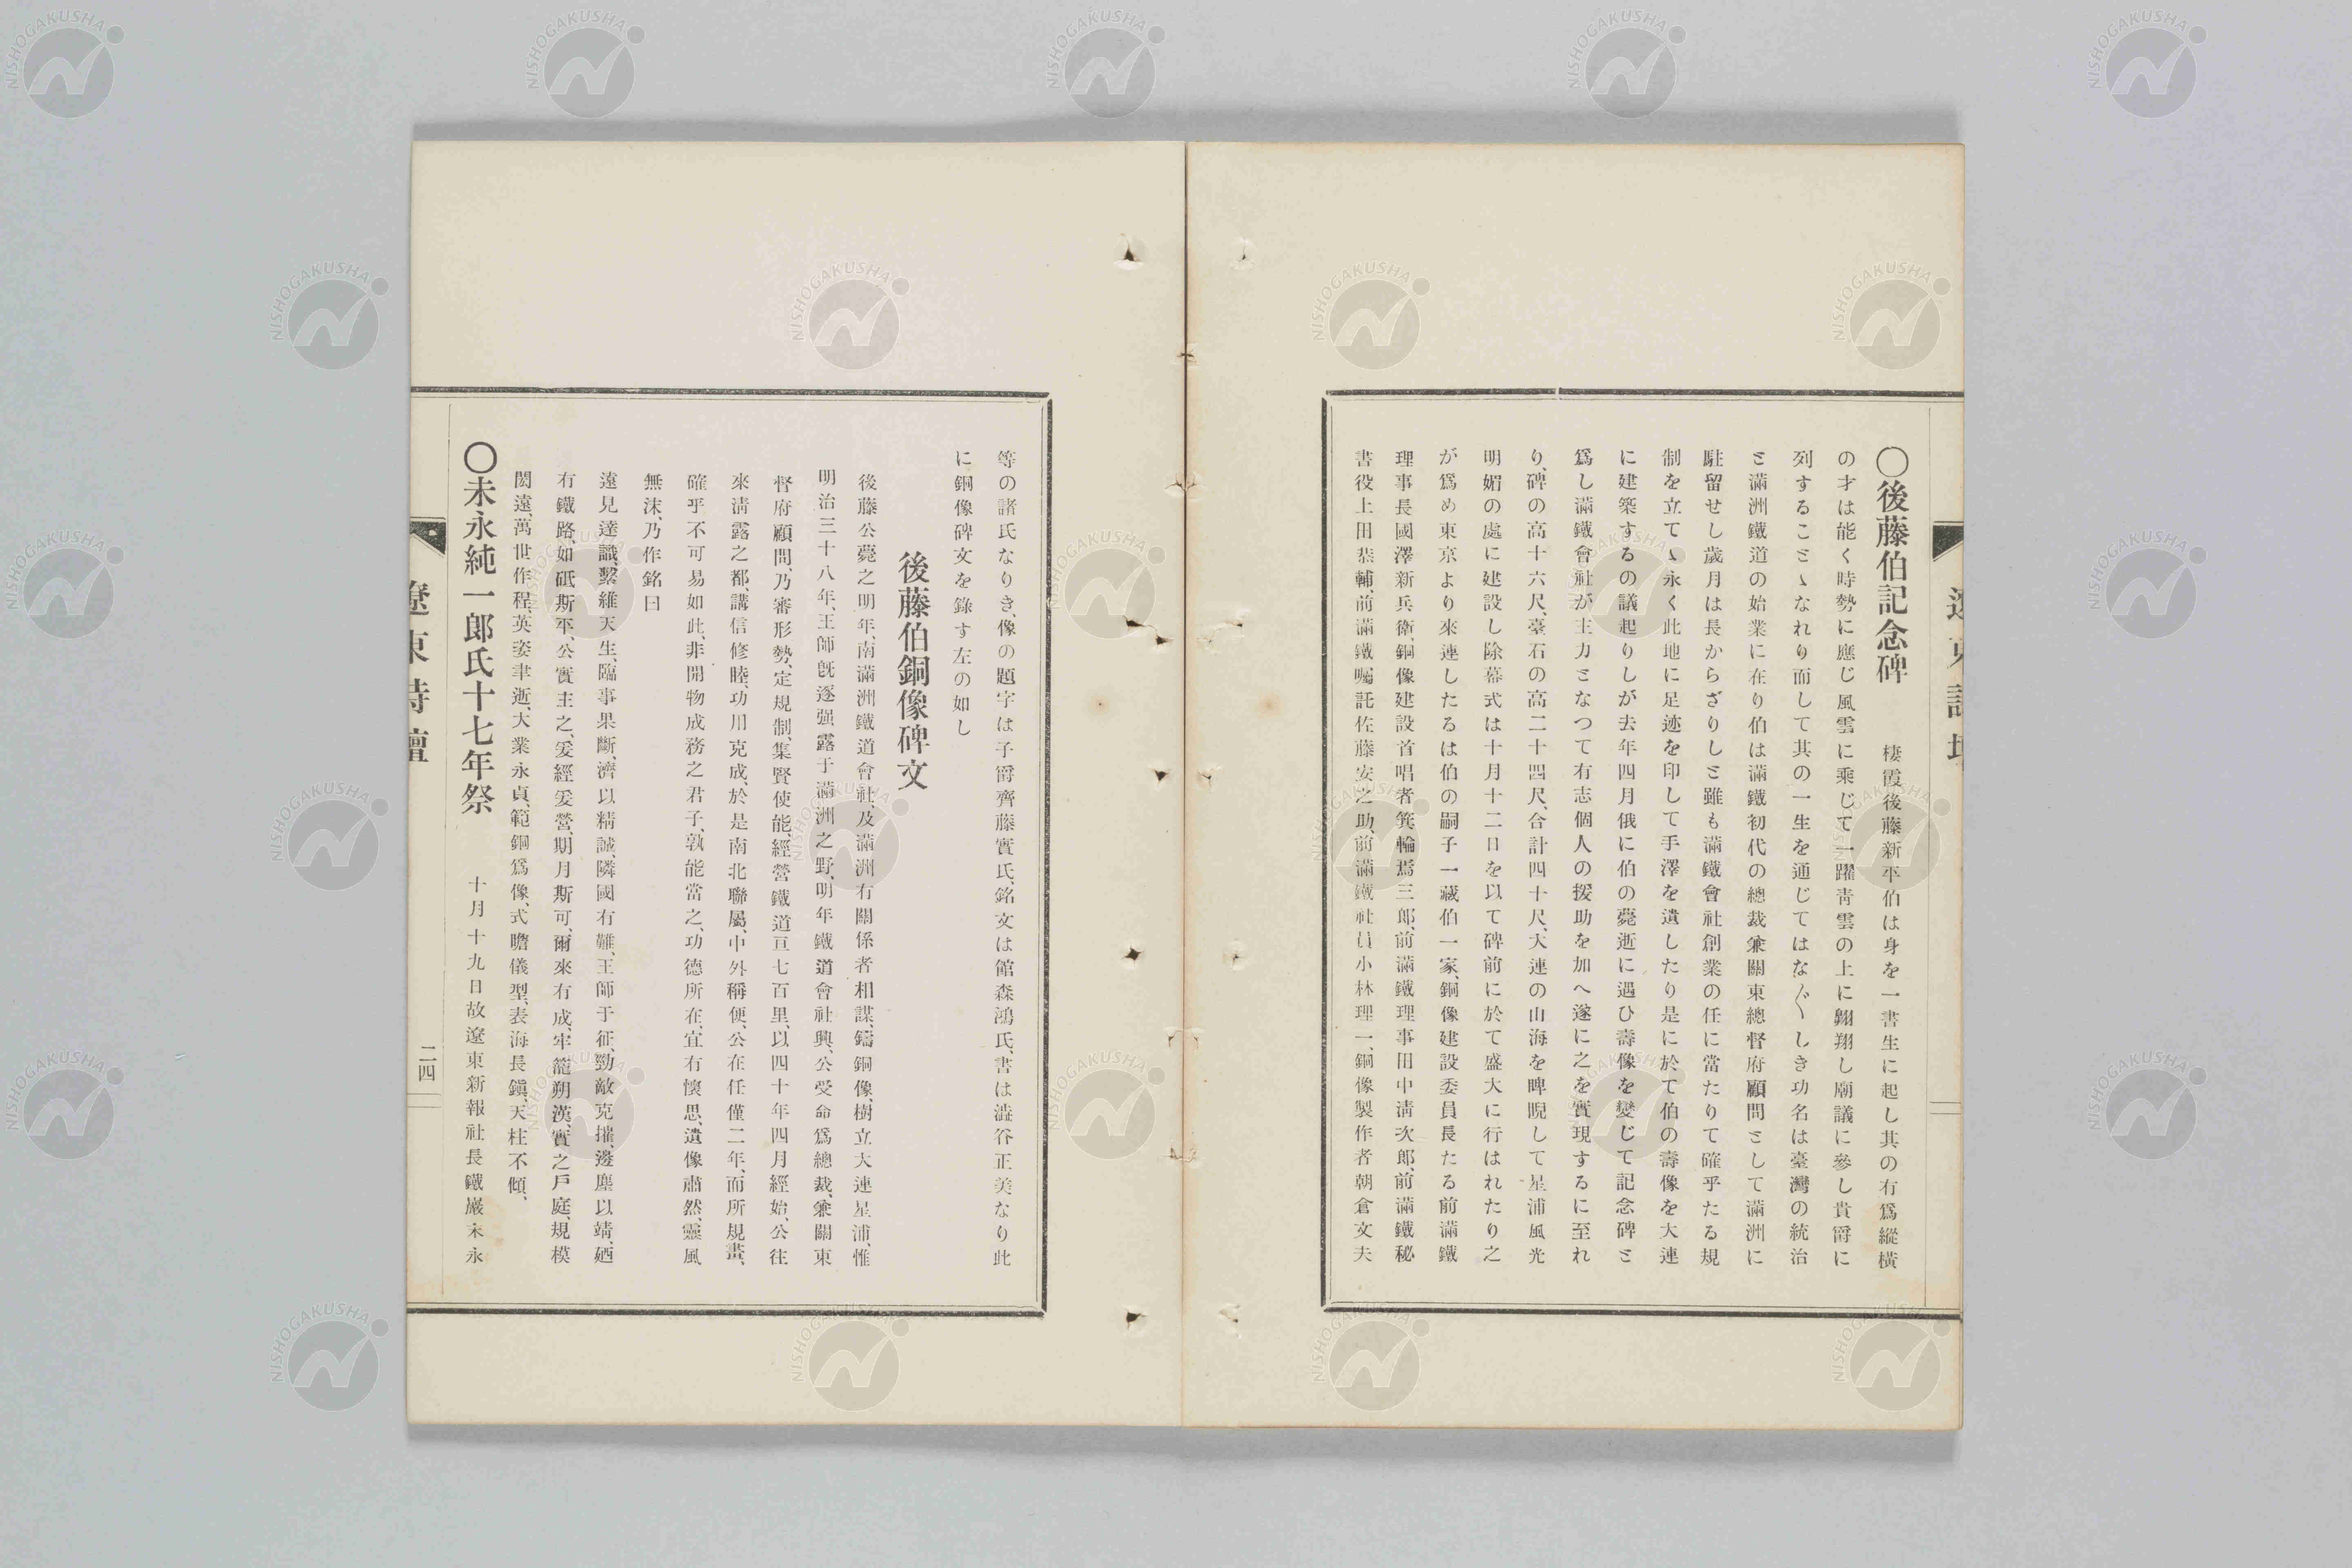 〇後藤伯記念碑　棲霞後藤新平伯は身を一書生に起し其の有爲縱橫
の才は能く時勢に應じ風雲に乘じて一躍靑雲の上に翺翔し廟議に參し貴爵に
列することゝなれり而して其の一生を通じてはな〴〵しき功名は臺灣の統治
と滿洲鐵道の始業に在り伯は滿鐵初代の總裁兼關東總督府顧問として滿洲に
駐留せし歲月は長からざりしと雖も滿鐵會社創業の任に當たりて確乎たる規
制を立てゝ永く此地に足迹を印して手澤を遺したり是に於て伯の壽像を大連
に建築するの議起りしが去年四月俄に伯の薨逝に遇ひ壽像を變じて記念碑と
爲し滿鐵會社が主力となつて有志個人の援助を加へ遂に之を實現するに至れ
り、碑の高十六尺、臺石の高二十四尺、合計四十尺、大連の山海を睥睨して星浦風光
明媚の處に建設し除幕式は十月十二日を以て碑前に於て盛大に行はれたり之
が爲め東京より來連したるは伯の嗣子一藏伯一家、銅像建設委員長たる前滿鐵
理事長國澤新兵衞、銅像建設首唱者箕輪焉三郞、前滿鐵理事田中淸次郞、前滿鐵秘
書役上田恭輔、前滿鐵囑託佐藤安之助、前滿鐵社員小林理一、銅像製作者朝倉文夫
等の諸氏なりき、像の題字は子爵齊藤實氏、銘文は館森鴻氏、書は澁谷正美なり此
に銅像碑文を錄す左の如し
後藤伯銅像碑文
後藤公薨之明年、南滿洲鐵道會社、及滿洲有關係者相謀、鑄銅像、樹立大連星浦、惟
明治三十八年、王師旣逐强露于滿洲之野、明年鐵道會社興、公受命爲總裁、兼關東
督府顧問、乃審形勢、定規制、集賢使能、經營鐵道亘七百里、以四十年四月經始、公往
來淸露之都、講信修睦、功用克成、於是南北聯屬、中外稱便、公在任僅二年、而所規畫、
確乎不可易如此、非開物成務之君子、孰能當之、功德所在、宜有懷思、遺像肅然、靈風
無沫、乃作銘曰
遠見達識、繫維天生、臨事果斷、濟以精誠、隣國有難、王師于征、勁敵克摧、邊塵以靖、廼
有鐵路、如砥斯平、公實主之、爰經爰營、期月斯可、爾來有成、牢籠朔漠、實之戶庭、規模
閎遠、萬世作程、英姿聿逝、大業永貞、範銅爲像、式瞻儀型、表海長鎭、天柱不傾、
〇末永純一郞氏十七年祭　十月十九日故遼東新報社長鐵巖末永
遼東詩壇
二四